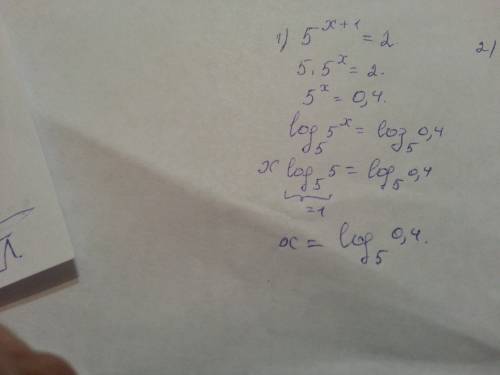 1) 5^{x+1} = 2.
5 · 5^x = 2.
5^x = 0,4.
log_5 5^x = log_5 0,4
x log_5 5 = log_5 0,4
=1
x = log_5 0,4.
2)